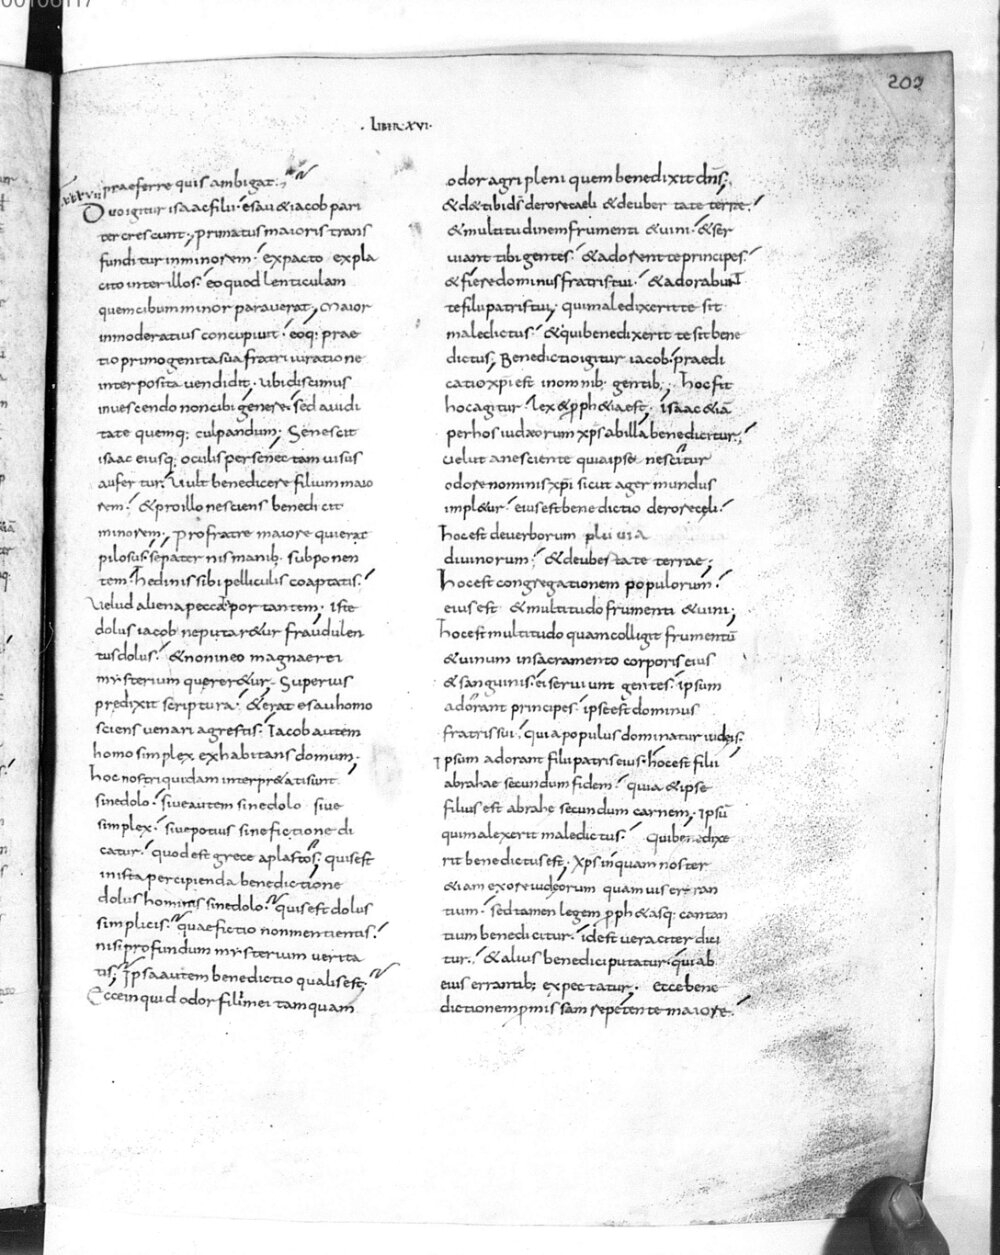 202
· LIBER XVI ·
praeferre quis ambigat;
XXXVII
Duo igitur isaac filii· esau & iacob pari
ter crescunt; primatus maioris trans
funditur in minorem· ex pacto & pla
cito inter illos· eo quod lenticulam
quem cibum minor parauerat; maior
inmoderatius concupiuit· eoq; prae
tio primogenita sua fratri iuratione
interposita uendidit· ubi discimus
in uescendo non cibi genere· sed auidi
tate quemq; culpandum; Senescit
isaac eiusq; oculis per senectam uisus
aufertur; Uult benedicere filium maio
rem· & pro illo nesciens benedicit
minorem; pro fratre maiore qui erat
pilosus· se pater nis manib; subponen
tem· hedinis sibi pelliculis coaptatis·
uelud aliena peccata portantem; iste
dolus iacob ne putar&ur fraudulen
tus dolus· & non in eo magnae rei
mysterium quерer&ur; Superius
predixit scriptura· & erat esau homo
sciens uenari agrestis· Iacob autem
homo simplex & habitans domum·
hoc nostri quidam interpr&ati sunt
sine dolo· siue autem sine dolo siue
simplex· siue potius sine fictione di
catur· quod est grece aplastos; quis est
in ista percipienda benedictione
dolus hominis sine dolo· quis est dolus
simplicis· quae fictio non mentientis·
nisi profundum mysterium uerita
tis; Ipsa autem benedictio qualis est;
Ecce inquid odor filii mei tamquam
odor agri pleni quem benedixit dns;
& d& tibi ds de rore caeli & de uber tate terrae·
& multitudinem frumenti & uini· & ser
uiant tibi gentes· & adorent te principes·
& fiere dominus fratris tui· & adorabunt
te filii patris tui; qui maledixerit te sit
maledictus· & qui benedixerit te sit bene
dictus; Benedictio igitur iacob praedi
catio xpi est in omnib; gentib; hoc fit
hoc agitur· lex & proph&ia est· isaac &iā
per hos iudaeorum xps ab illa benedicitur;
uelut a nesciente quia ipse nescitur
odore nominis xpi sicut ager mundus
impl&ur· eius est benedictio de rore celi·
hoc est de uerborum pluuia
diuinorum· & de ubertate terrae;
hoc est congregationem populorum·
eius est & multitudo frumenti & uini;
hoc est multitudo quam colligit frumentū
& uinum in sacramento corporis eius
& sanguinis· ei seruiunt gentes· ipsum
adorant principes· ipse est dominus
fratris sui· quia populus dominatur iudeis;
ipsum adorant filii patris eius· hoc est filii
abrahae secundum fidem· quia & ipse
filius est abrahe secundum carnem; ipsū
qui malexerit maledictus· Qui benedixe
rit benedictus est; Xps inquam noster
&iam ex ore iudeorum quamuis erran
tium· sed tamen legem proph&asq; cantan
tium benedicitur· id est ueraciter dici
tur· & alius benedici putatur· qui ab
eius errantib; expectatur; Ecce bene
dictionem promissam repetente maiore·